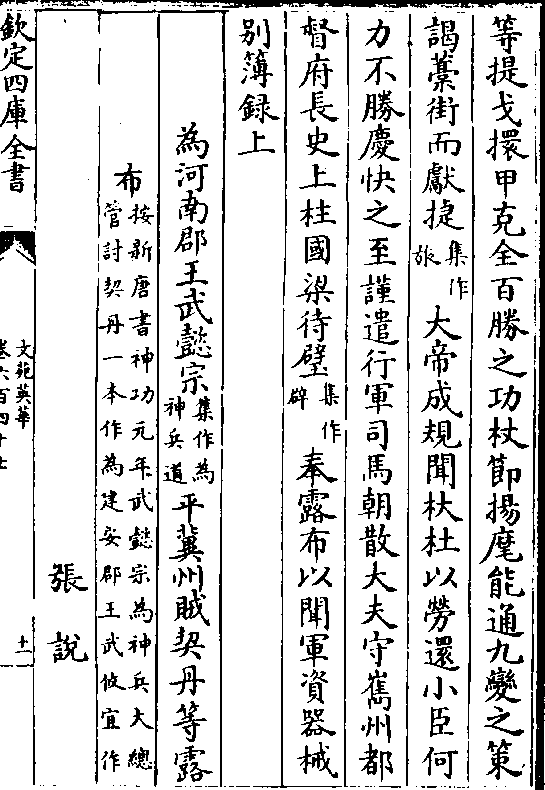 等提戈擐甲克全百勝之功杖節揚麾能通九變之策
謁藁街而獻捷集作旅大帝成規聞杕杜以勞還小臣何
力不勝慶快之至謹遣行軍司馬朝散大夫守嶲州都
督府長史上柱國梁待璧集作辟奉露布以聞軍資器械
别簿録上
為河南郡王武懿宗集作為神兵道平冀州賊契丹等露
布按新唐書神功元年武懿宗為神兵大總管討契丹一本作為建安郡王武攸宜作
張說
欽定四庫全書
文苑英華
卷六百四十七
十一